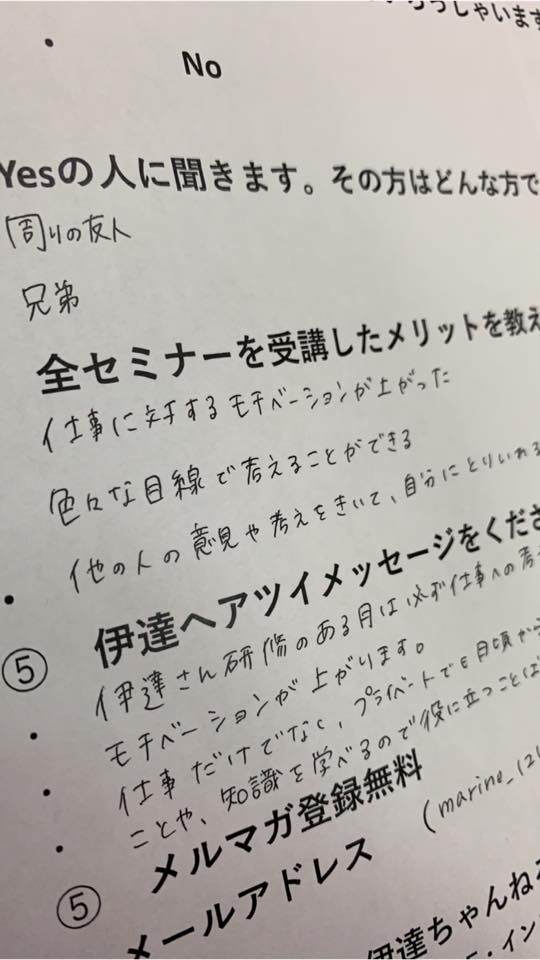 らっしゃいます
No
Yesの人に聞きます。その方はどんな方で
周りの友人
兄弟
全セミナーを受講したメリットを教え
仕事に対するモチベーションが上がった
色々な目線で考えることができる
他の人の意見や考えをきいて、自分にとりいれる
⑤ 伊達へアツイメッセージをくださ
伊達さん研修のある月は必ず仕事への考
モチベーションが上がります。
仕事だけでなく、プライベートでも日頃から
ことや、知識を学べるので役に立つことば
⑤ メルマガ登録無料
メールアドレス (marine_12
伊達ちゃんね
・イン